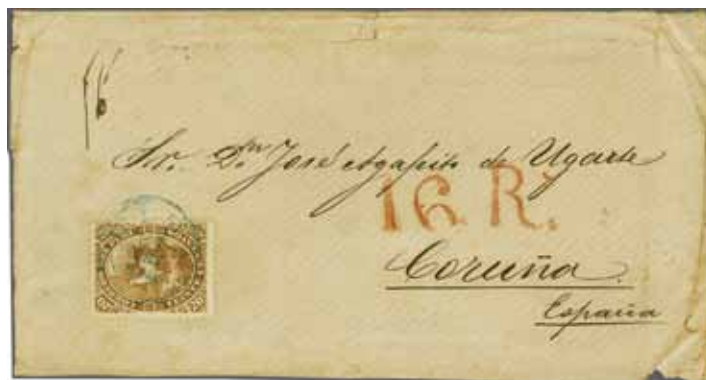 16
Sr. Dn. José Agapito de Ugarte
16. R.
Coruña.
España